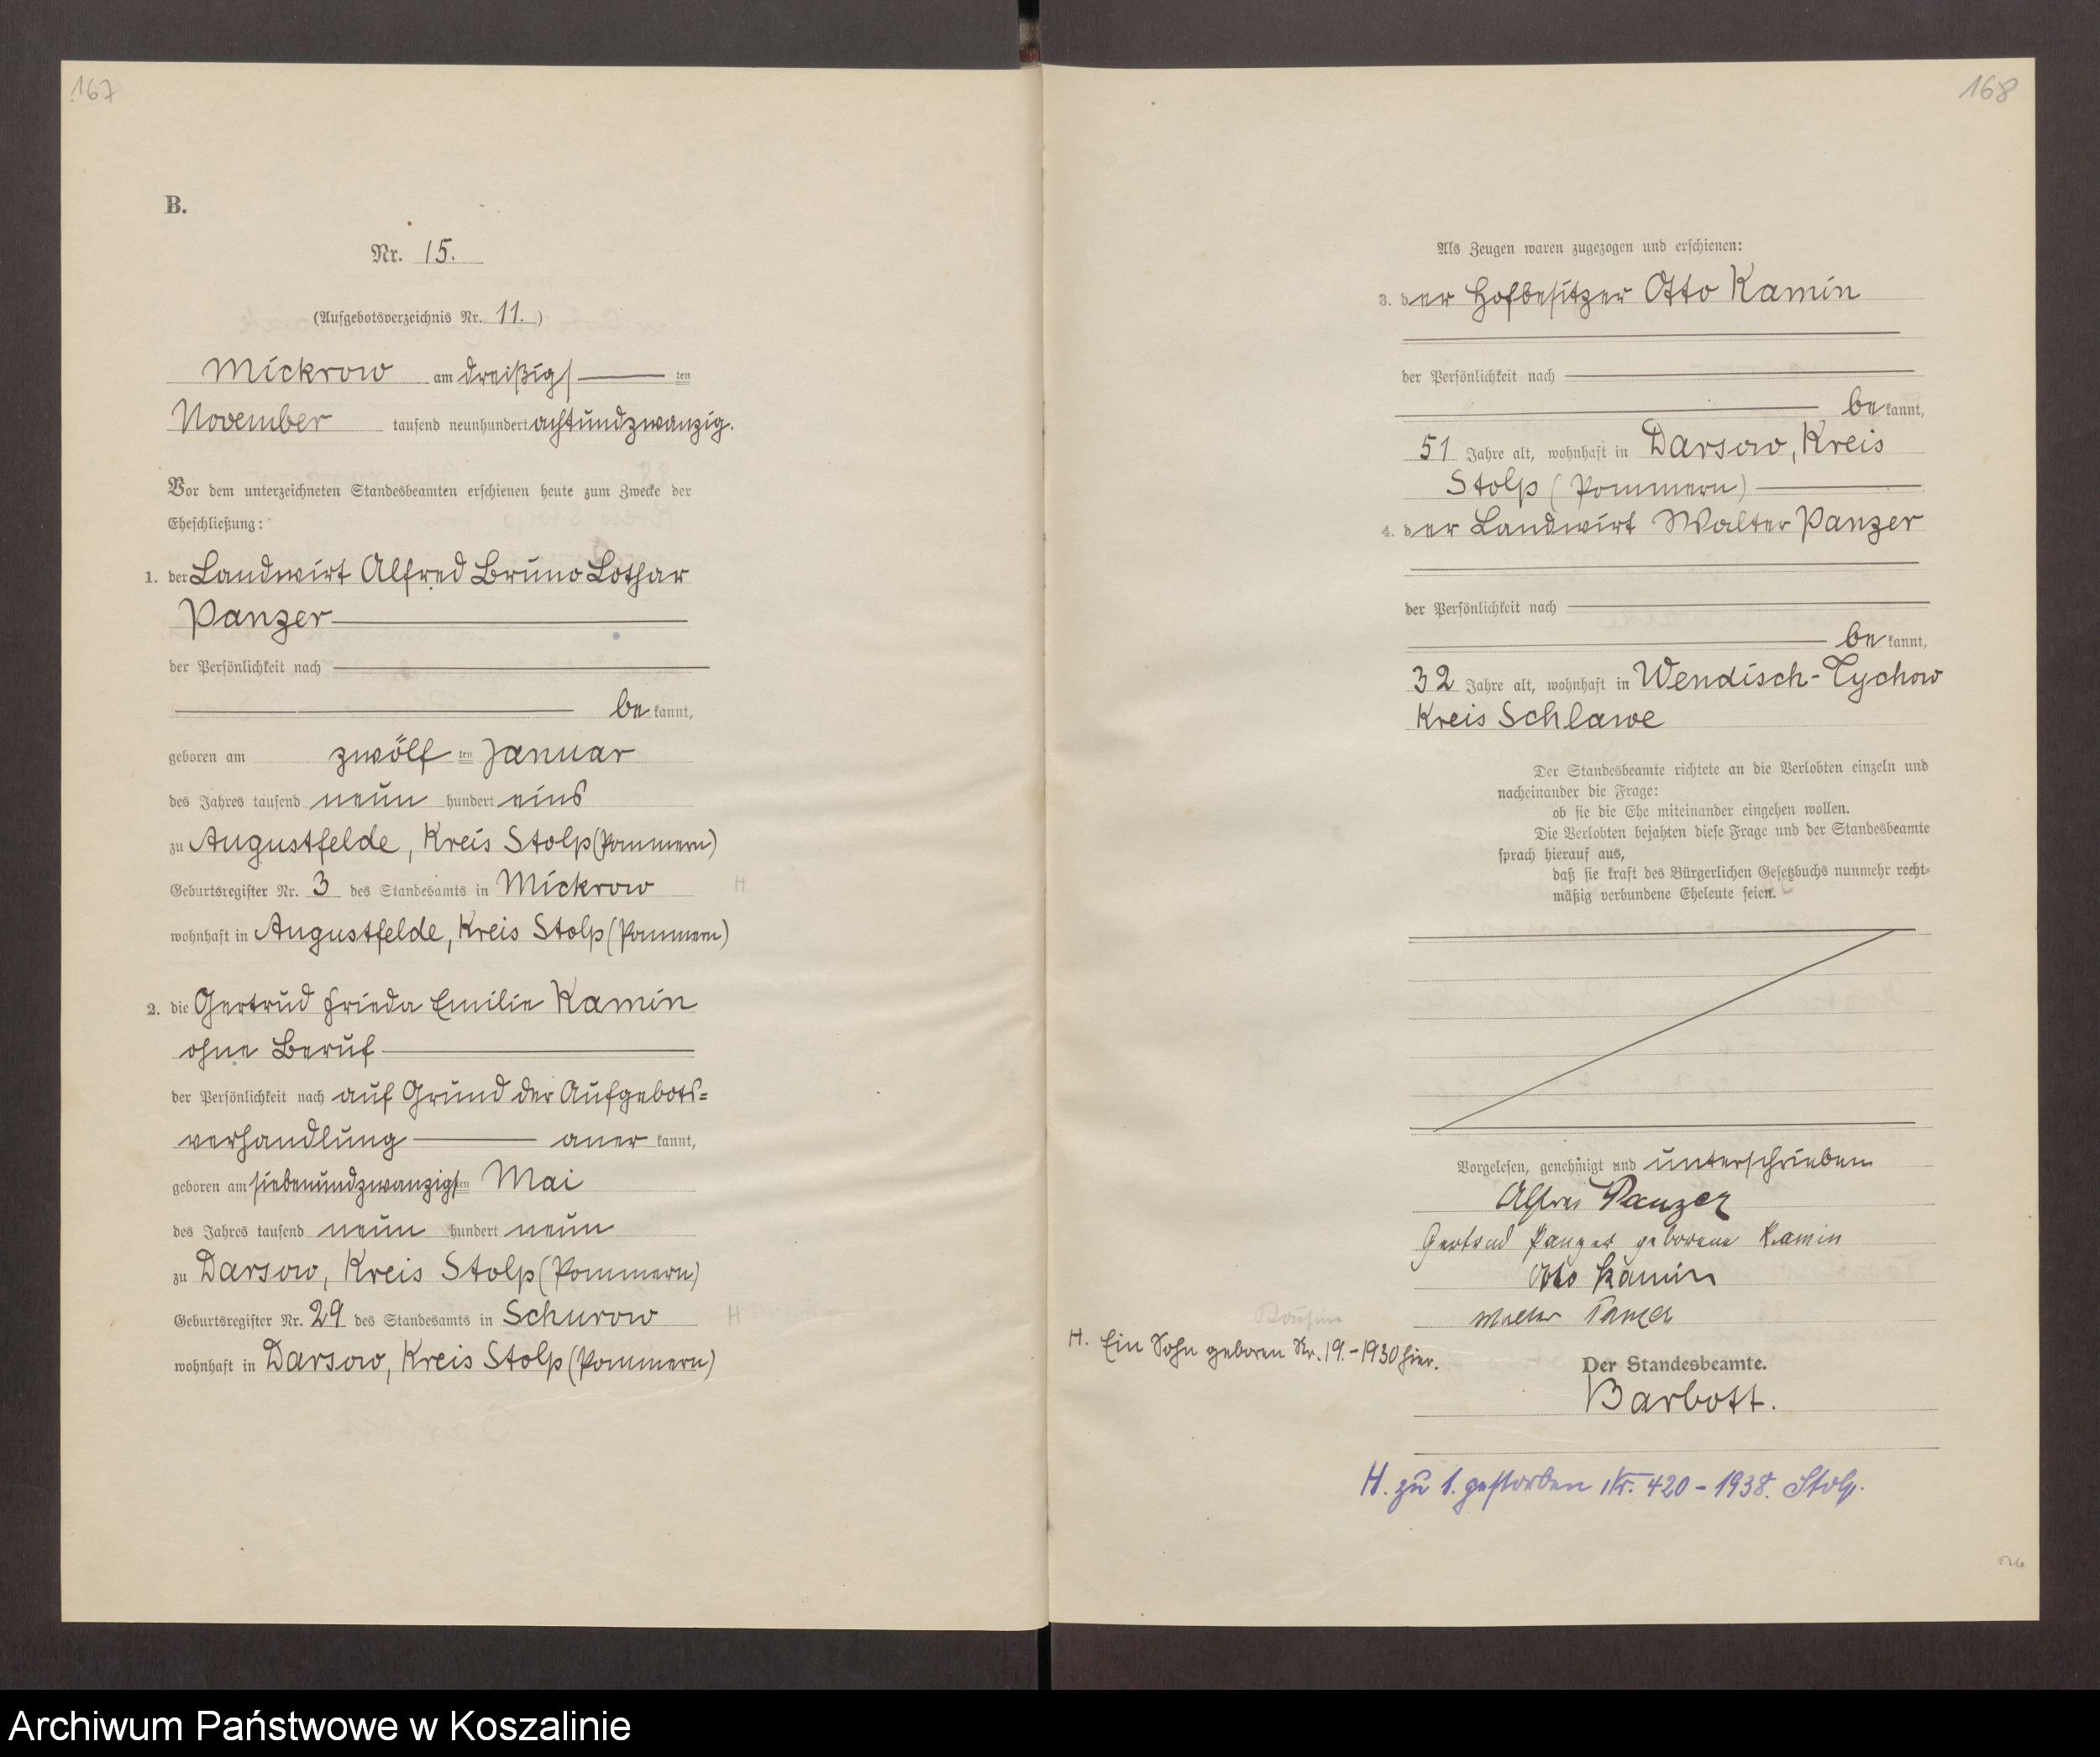 167
B.
Nr. 15.
(Aufgebotsverzeichnis Nr. 11.)
Mickrow am dreißigsten
November tausend neunhundert achtundzwanzig.
Vor dem unterzeichneten Standesbeamten erschienen heute zum Zwecke der
Eheschließung:
1. der Landwirt Alfred Bruno Lothar
Panzer
der Persönlichkeit nach
bekannt,
geboren am zwölften Januar
des Jahres tausend neun hundert eins
zu Augustfelde, Kreis Stolp (Pommern)
Geburtsregister Nr. 3 des Standesamts in Mickrow H
wohnhaft in Augustfelde, Kreis Stolp (Pommern)
2. die Gertrud Frieda Emilie Kamin
ohne Beruf
der Persönlichkeit nach auf Grund der Aufgebots=
verhandlung anerkannt,
geboren am siebenundzwanzigsten Mai
des Jahres tausend neun hundert neun
zu Darsow, Kreis Stolp (Pommern)
Geburtsregister Nr. 29 des Standesamts in Schurow H
wohnhaft in Darsow, Kreis Stolp (Pommern)
168
Als Zeugen waren zugezogen und erschienen:
3. der Hofbesitzer Otto Kamin
der Persönlichkeit nach
bekannt,
51 Jahre alt, wohnhaft in Darsow, Kreis
Stolp (Pommern)
4. der Landwirt Walter Panzer
der Persönlichkeit nach
bekannt,
32 Jahre alt, wohnhaft in Wendisch-Tychow
Kreis Schlawe
Der Standesbeamte richtete an die Verlobten einzeln und
nacheinander die Frage:
ob sie die Ehe miteinander eingehen wollen.
Die Verlobten bejahten diese Frage und der Standesbeamte
sprach hierauf aus,
daß sie kraft des Bürgerlichen Gesetzbuchs nunmehr recht=
mäßig verbundene Eheleute seien.
Vorgelesen, genehmigt und unterschrieben
Alfred Panzer
Gertrud Panzer geborene Kamin
Otto Kamin
Walter Panzer
H. Ein Sohn geboren Nr. 19.-1930 hier.
Der Standesbeamte.
Barbott.
H. zu 1. gestorben Nr. 420-1938. Stolp.
Archiwum Państwowe w Koszalinie